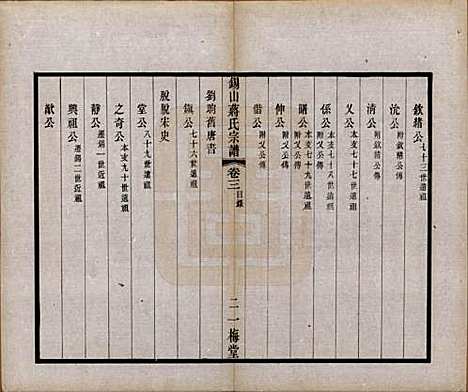 欽緒公 七十三世
沈公 附欽緒公傳
清公 附欽緒公傳
乂公 本支七十七世祖
係公 本支七十八世祖
賭公 本支七十九世祖
伸公 附乂公傳
偕公 附乂公傳
錫山蔣氏宗譜 卷三 目錄 二 一梅堂
劉昫舊唐書
鎮公 七十六世祖
脫脫宋史
堂公 八十九世祖
之奇公 本支九十世祖
靜公 遷錫一世近祖
興祖公 遷錫二世近祖
猷公